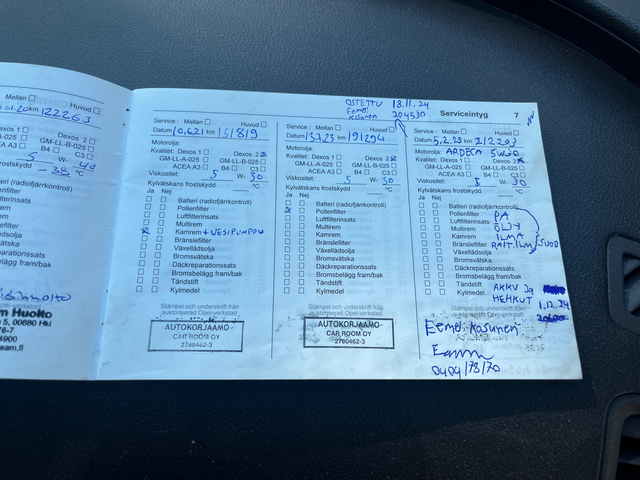 OSTETTU 18.11.24
Eemel Kasunen 204530
Serviceintyg 7
Mellan Huvud
km 122263
Dexos 1 Dexos 2
GM-LL-A-025 GM-LL-B-025
B4 C3
5 W- 40
frostskydd -38 °C
Batteri (radiofjärrkontroll)
Pollenfilter
Luftfilterinsats
Multirem
Kamrem
Bränslefilter
Växellådsolja
Bromsvätska
Däckreparationssats
Bromsbelägg fram/bak
Tändstift
Kylmedel
Huolto
00880 Hki
Service: Mellan Huvud
Datum 10,6,21 km 151819
Motorolja:
Kvalitet: Dexos 1 Dexos 2
GM-LL-A-025 GM-LL-B-025
ACEA A3 B4 C3
Viskositet: 5 W- 30
Kylvätskans frostskydd °C
Ja Nej
Batteri (radiofjärrkontroll)
Pollenfilter
Luftfilterinsats
Multirem
Kamrem + VESIPUMPPU
Bränslefilter
Växellådsolja
Bromsvätska
Däckreparationssats
Bromsbelägg fram/bak
Tändstift
Kylmedel
Stämpel och underskrift från
auktoriserad Opel-verkstad
AUTOKORJAAMO
CAR ROOM OY
2780462-3
Service: Mellan Huvud
Datum 13.7.23 km 191294
Motorolja:
Kvalitet: Dexos 1 Dexos 2
GM-LL-A-025 GM-LL-B-025
ACEA A3 B4 C3
Viskositet: 5 W- 30
Kylvätskans frostskydd °C
Ja Nej
Batteri (radiofjärrkontroll)
Pollenfilter
Luftfilterinsats
Multirem
Kamrem
Bränslefilter
Växellådsolja
Bromsvätska
Däckreparationssats
Bromsbelägg fram/bak
Tändstift
Kylmedel
Stämpel och underskrift från
auktoriserad Opel-verkstad
AUTOKORJAAMO
CAR ROOM OY
2780462-3
Service: Mellan Huvud
Datum km 212203
Motorolja: ARDECA 5W30
Kvalitet: Dexos 1 Dexos 2
GM-LL-A-025 GM-LL-B-025
ACEA A3 B4 C3
Viskositet: 5 W- 30
Kylvätskans frostskydd °C
Ja Nej
Batteri (radiofjärrkontroll)
Pollenfilter PA
Luftfilterinsats ÖLJY
Multirem ILMA
Kamrem RAIT.ILM SUOD
Bränslefilter
Växellådsolja
Bromsvätska
Däckreparationssats
Bromsbelägg fram/bak
Tändstift AKKU Ja
Kylmedel HEHKUT 1.12.24
Stämpel och underskrift från
auktoriserad Opel-verkstad
Eemel Kasunen